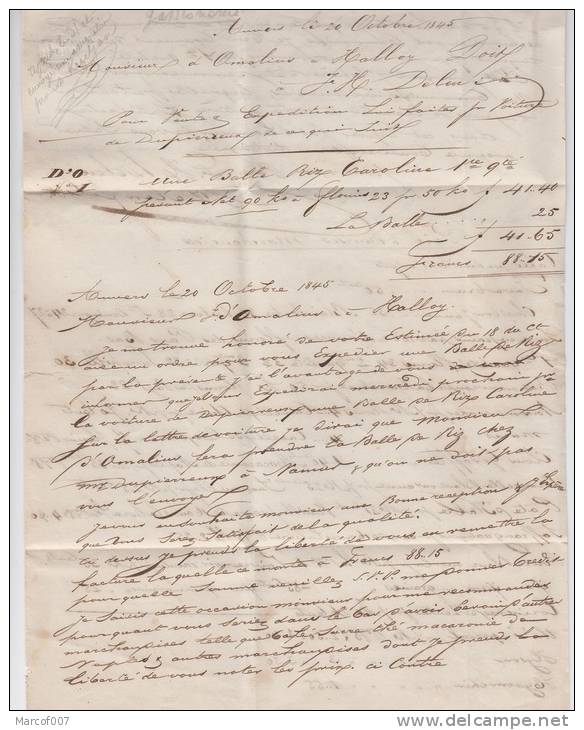 Anvers le 20 Octobre 1845
Monsieur d'Omalius a Halloy Doit
a J. H.
Pour Vente & Expedition Lui faites pr Voiture
de Dupierreux de ce qui Suit
D:O Une Balle Riz Caroline 1re qté
No 1 pesant Net 90 ko a florins 23 pr 50 ko f 41-40
La Balle 25
f 41-65
Francs 88-15
Anvers le 20 Octobre 1845
Monsieur J. d'Omalius a Halloy.
Je me trouve honoré de votre Estimée du 18 du ct
avec un ordre pour vous Expedier une Balle de Riz
par la présente j'ai l'avantage de vous
informer que je vous Expedirai mercredi prochain pr
la voiture à Dupierreux une Balle de Riz Caroline
Sur la lettre de voiture je dirai que Monsieur J.
d'Omalius fera prendre la Balle de Riz chez
mr Dupierreux à Namur & qu'on ne doit pas
vous l'envoyer
Je vous en souhaite monsieur une Bonne reception & J'Espère
que vous Serez Satisfait de la qualité.
ci dessus je prends la liberté de vous en remettre la
facture la quelle ce monte à Francs 88-15
pour quelle Somme veuillez S.V.P. me Donner Credit
Je Saisis cette occasion monsieur pour me recommander
pour quant vous seriez dans le Cas d'avoir besoin d'autre
marchandises telle que Cafés Sucre thé macaronie de
Naples & autres marchandises dont je prends la
liberté de vous notes les prix ci Contre
Marcof007
delcampe.net